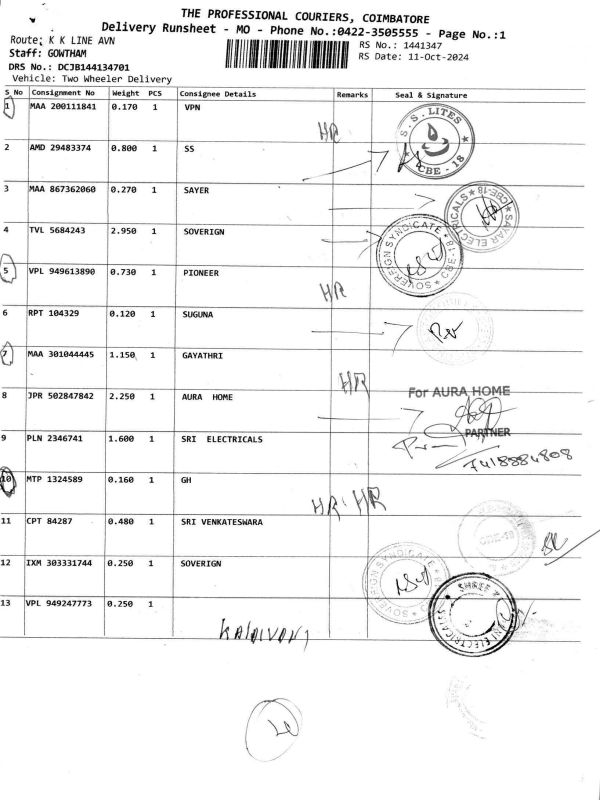 THE PROFESSIONAL COURIERS, COIMBATORE
Delivery Runsheet - MO - Phone No.:0422-3505555 - Page No.:1
Route: K K LINE AVN
RS No.: 1441347
Staff: GOWTHAM
RS Date: 11-Oct-2024
DRS No.: DCJB144134701
Vehicle: Two Wheeler Delivery
S_No Consignment No Weight PCS Consignee Details Remarks Seal & Signature
1 MAA 200111841 0.170 1 VPN
HR
S.S. LITES
CBE - 18
2 AMD 29483374 0.800 1 SS
3 MAA 867362060 0.270 1 SAYER
SAYAR ELECTRICALS CBE-18
4 TVL 5684243 2.950 1 SOVERIGN
SOVEREIGN SYNDICATE CBE-18
5 VPL 949613890 0.730 1 PIONEER
HR
6 RPT 104329 0.120 1 SUGUNA
7 MAA 301044445 1.150 1 GAYATHRI
HR
8 JPR 502847842 2.250 1 AURA HOME
For AURA HOME
PARTNER
7418884808
9 PLN 2346741 1.600 1 SRI ELECTRICALS
10 MTP 1324589 0.160 1 GH
HR HR
11 CPT 84287 0.480 1 SRI VENKATESWARA
CBE-18
12 IXM 303331744 0.250 1 SOVERIGN
SOVEREIGN SYNDICATE
13 VPL 949247773 0.250 1
SHREE
ELECTRICALS